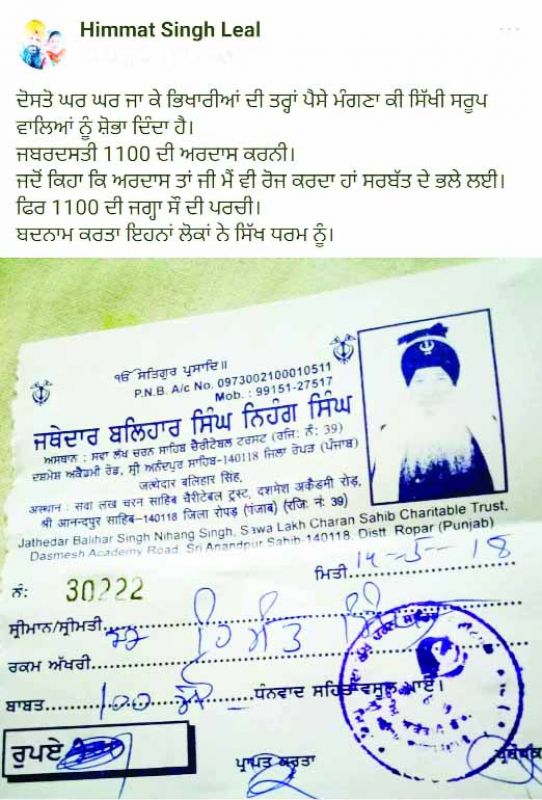 Himmat Singh Leal
ਦੋਸਤੋ ਘਰ ਘਰ ਜਾ ਕੇ ਭਿਖਾਰੀਆਂ ਦੀ ਤਰ੍ਹਾਂ ਪੈਸੇ ਮੰਗਣਾ ਕੀ ਸਿੱਖੀ ਸਰੂਪ
ਵਾਲਿਆਂ ਨੂੰ ਸ਼ੋਭਾ ਦਿੰਦਾ ਹੈ।
ਜਬਰਦਸਤੀ 1100 ਦੀ ਅਰਦਾਸ ਕਰਨੀ।
ਜਦੋਂ ਕਿਹਾ ਕਿ ਅਰਦਾਸ ਤਾਂ ਜੀ ਮੈਂ ਵੀ ਰੋਜ ਕਰਦਾ ਹਾਂ ਸਰਬੱਤ ਦੇ ਭਲੇ ਲਈ।
ਫਿਰ 1100 ਦੀ ਜਗ੍ਹਾ ਸੌ ਦੀ ਪਰਚੀ।
ਬਦਨਾਮ ਕਰਤਾ ਇਹਨਾਂ ਲੋਕਾਂ ਨੇ ਸਿੱਖ ਧਰਮ ਨੂੰ।
ੴ ਸਤਿਗੁਰ ਪ੍ਰਸਾਦਿ॥
P.N.B. A/c No. 0973002100010511
Mob. : 99151-27517
ਜਥੇਦਾਰ ਬਲਿਹਾਰ ਸਿੰਘ ਨਿਹੰਗ ਸਿੰਘ
ਅਸਥਾਨ : ਸਵਾ ਲੱਖ ਚਰਨ ਸਾਹਿਬ ਚੈਰੀਟੇਬਲ ਟਰਸਟ (ਰਜਿ: ਨੰ: 39)
ਦਸ਼ਮੇਸ਼ ਅਕੈਡਮੀ ਰੋਡ, ਸ੍ਰੀ ਅਨੰਦਪੁਰ ਸਾਹਿਬ-140118 ਜਿਲਾ ਰੋਪੜ (ਪੰਜਾਬ)
ਜਲ੍ਥੇਦਾਰ ਬਲਿਹਾਰ ਸਿੰਹ,
ਅਸ੍ਥਾਨ : ਸਵਾ ਲਖ ਚਰਨ ਸਾਹਿਬ ਚੈਰੀਟੇਬਲ ਟ੍ਰਸਟ, ਦਸ਼ਮੇਸ਼ ਅਕੈਡਮੀ ਰੋੜ,
ਸ਼੍ਰੀ ਆਨਨ੍ਦਪੁਰ ਸਾਹਿਬ-140118 ਜਿਲਾ ਰੋਪੜ (ਪੰਜਾਬ) (ਰਜਿ: ਨੰ: 39)
Jathedar Balihar Singh Nihang Singh, Sawa Lakh Charan Sahib Charitable Trust,
Dasmesh Academy Road, Sri Anandpur Sahib-140118, Distt. Ropar (Punjab)
ਮਿਤੀ 14-5-18
ਨੰ: 30222
ਸ੍ਰੀਮਾਨ/ਸ੍ਰੀਮਤੀ ਹਿੰਮਤ ਸਿੰਘ
ਰਕਮ ਅੱਖਰੀ
ਬਾਬਤ 100 ਧੰਨਵਾਦ ਸਹਿਤ ਵਸੂਲ ਪਾਏ।
ਰੁਪਏ
ਪ੍ਰਾਪਤ ਕਰਤਾ